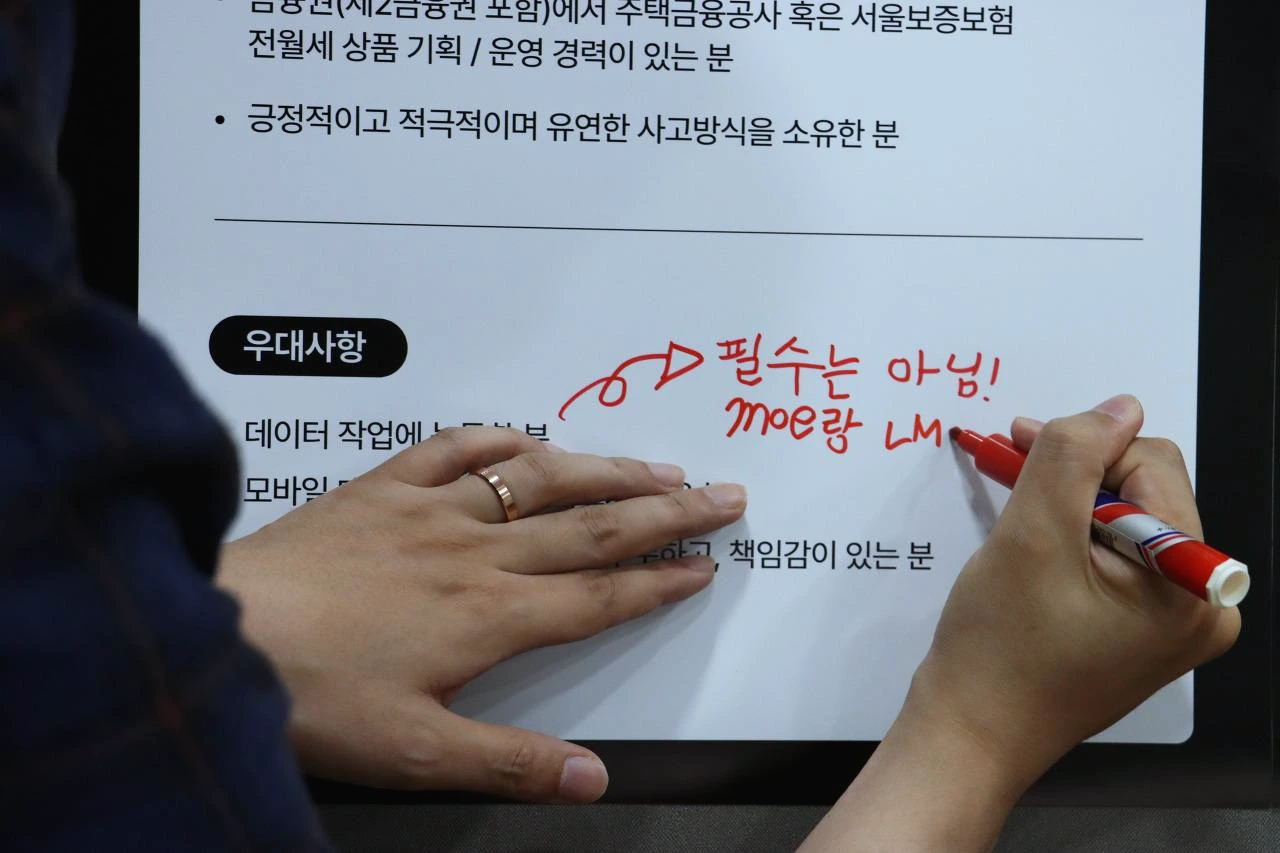 금융권(제2금융권 포함)에서 주택금융공사 혹은 서울보증보험
전월세 상품 기획 / 운영 경력이 있는 분
• 긍정적이고 적극적이며 유연한 사고방식을 소유한 분
우대사항
필수는 아님!
moe랑 LM
데이터 작업에 분
모바일
책임감이 있는 분